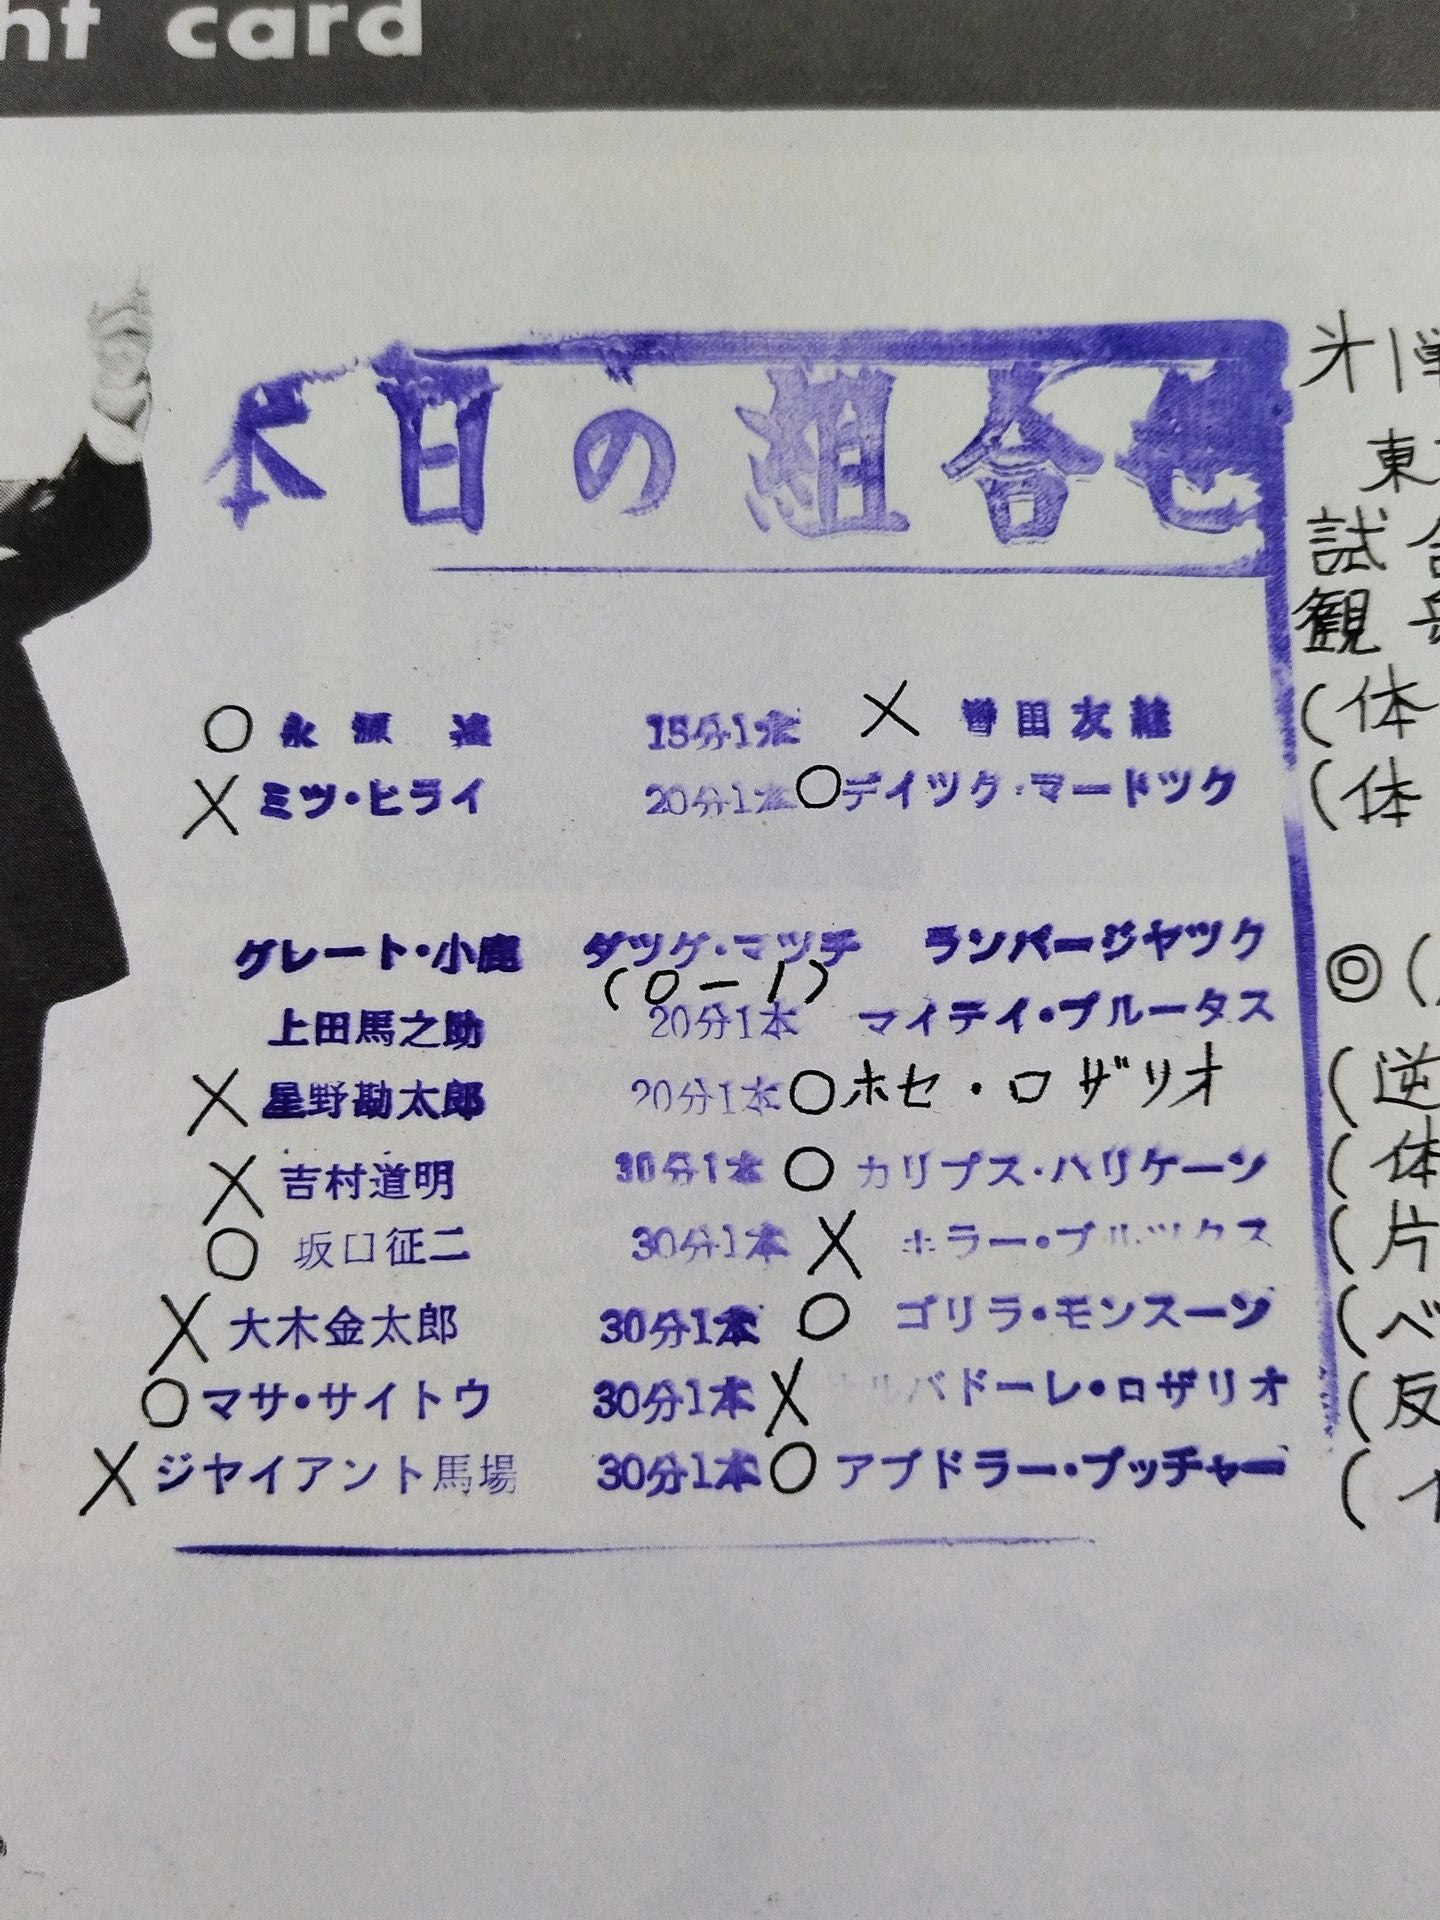 ht card
本日の組合せ
第1戦
東
試合
観
○ 永源遙 15分1本 × 轡田友継 (体
× ミツ・ヒライ 20分1本 ○ デイツク・マードツク (体
グレート・小鹿 タツグ・マツチ ランバージヤツク ◎(
(0-1)
上田馬之助 20分1本 マイテイ・ブルータス
× 星野勘太郎 20分1本 ○ ホセ・ロザリオ (逆
× 吉村道明 30分1本 ○ カリプス・ハリケーン (体
○ 坂口征二 30分1本 × キラー・ブルツクス (片
× 大木金太郎 30分1本 ○ ゴリラ・モンスーン (ベ
○ マサ・サイトウ 30分1本 × サルバドーレ・ロザリオ (反
× ジヤイアント馬場 30分1本 ○ アブドラー・ブッチャー (